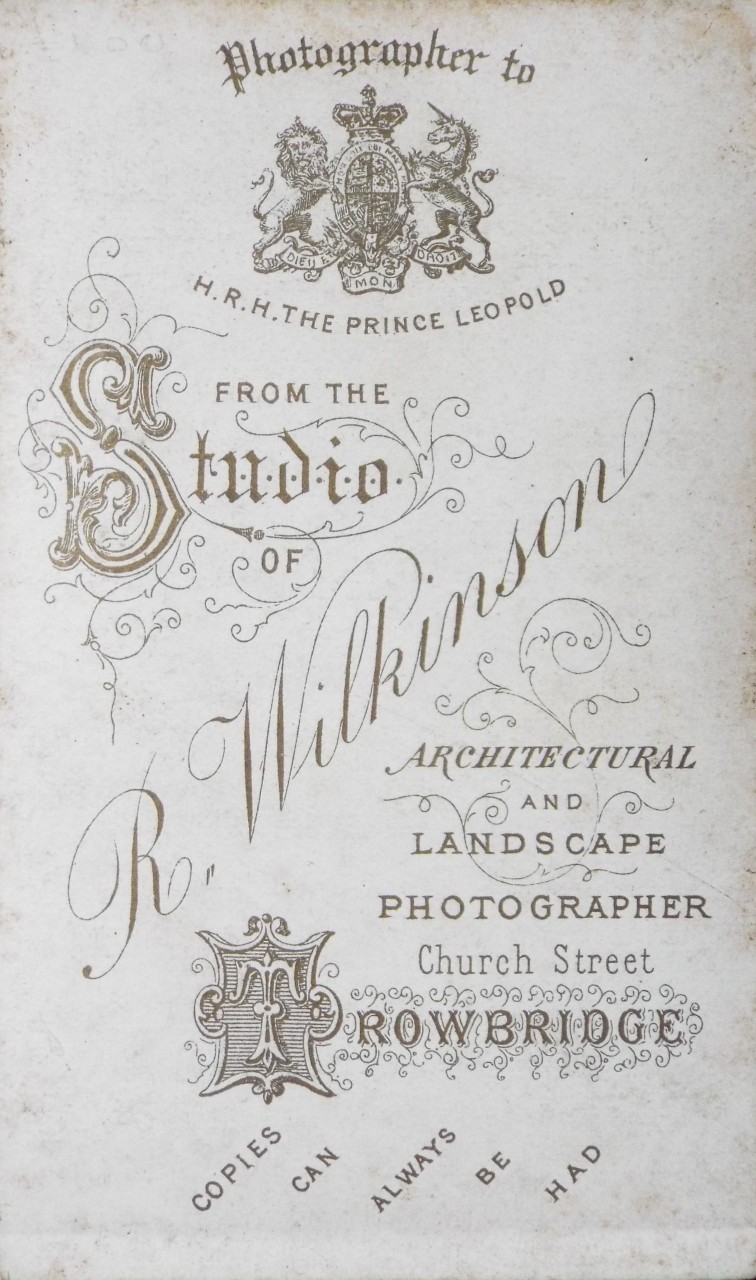 Photographer to
DIEU E
DROIT
MON
H.R.H. THE PRINCE LEOPOLD
FROM THE
Studio
OF
R. Wilkinson
ARCHITECTURAL
AND
LANDSCAPE
PHOTOGRAPHER
Church Street
TROWBRIDGE
COPIES CAN ALWAYS BE HAD